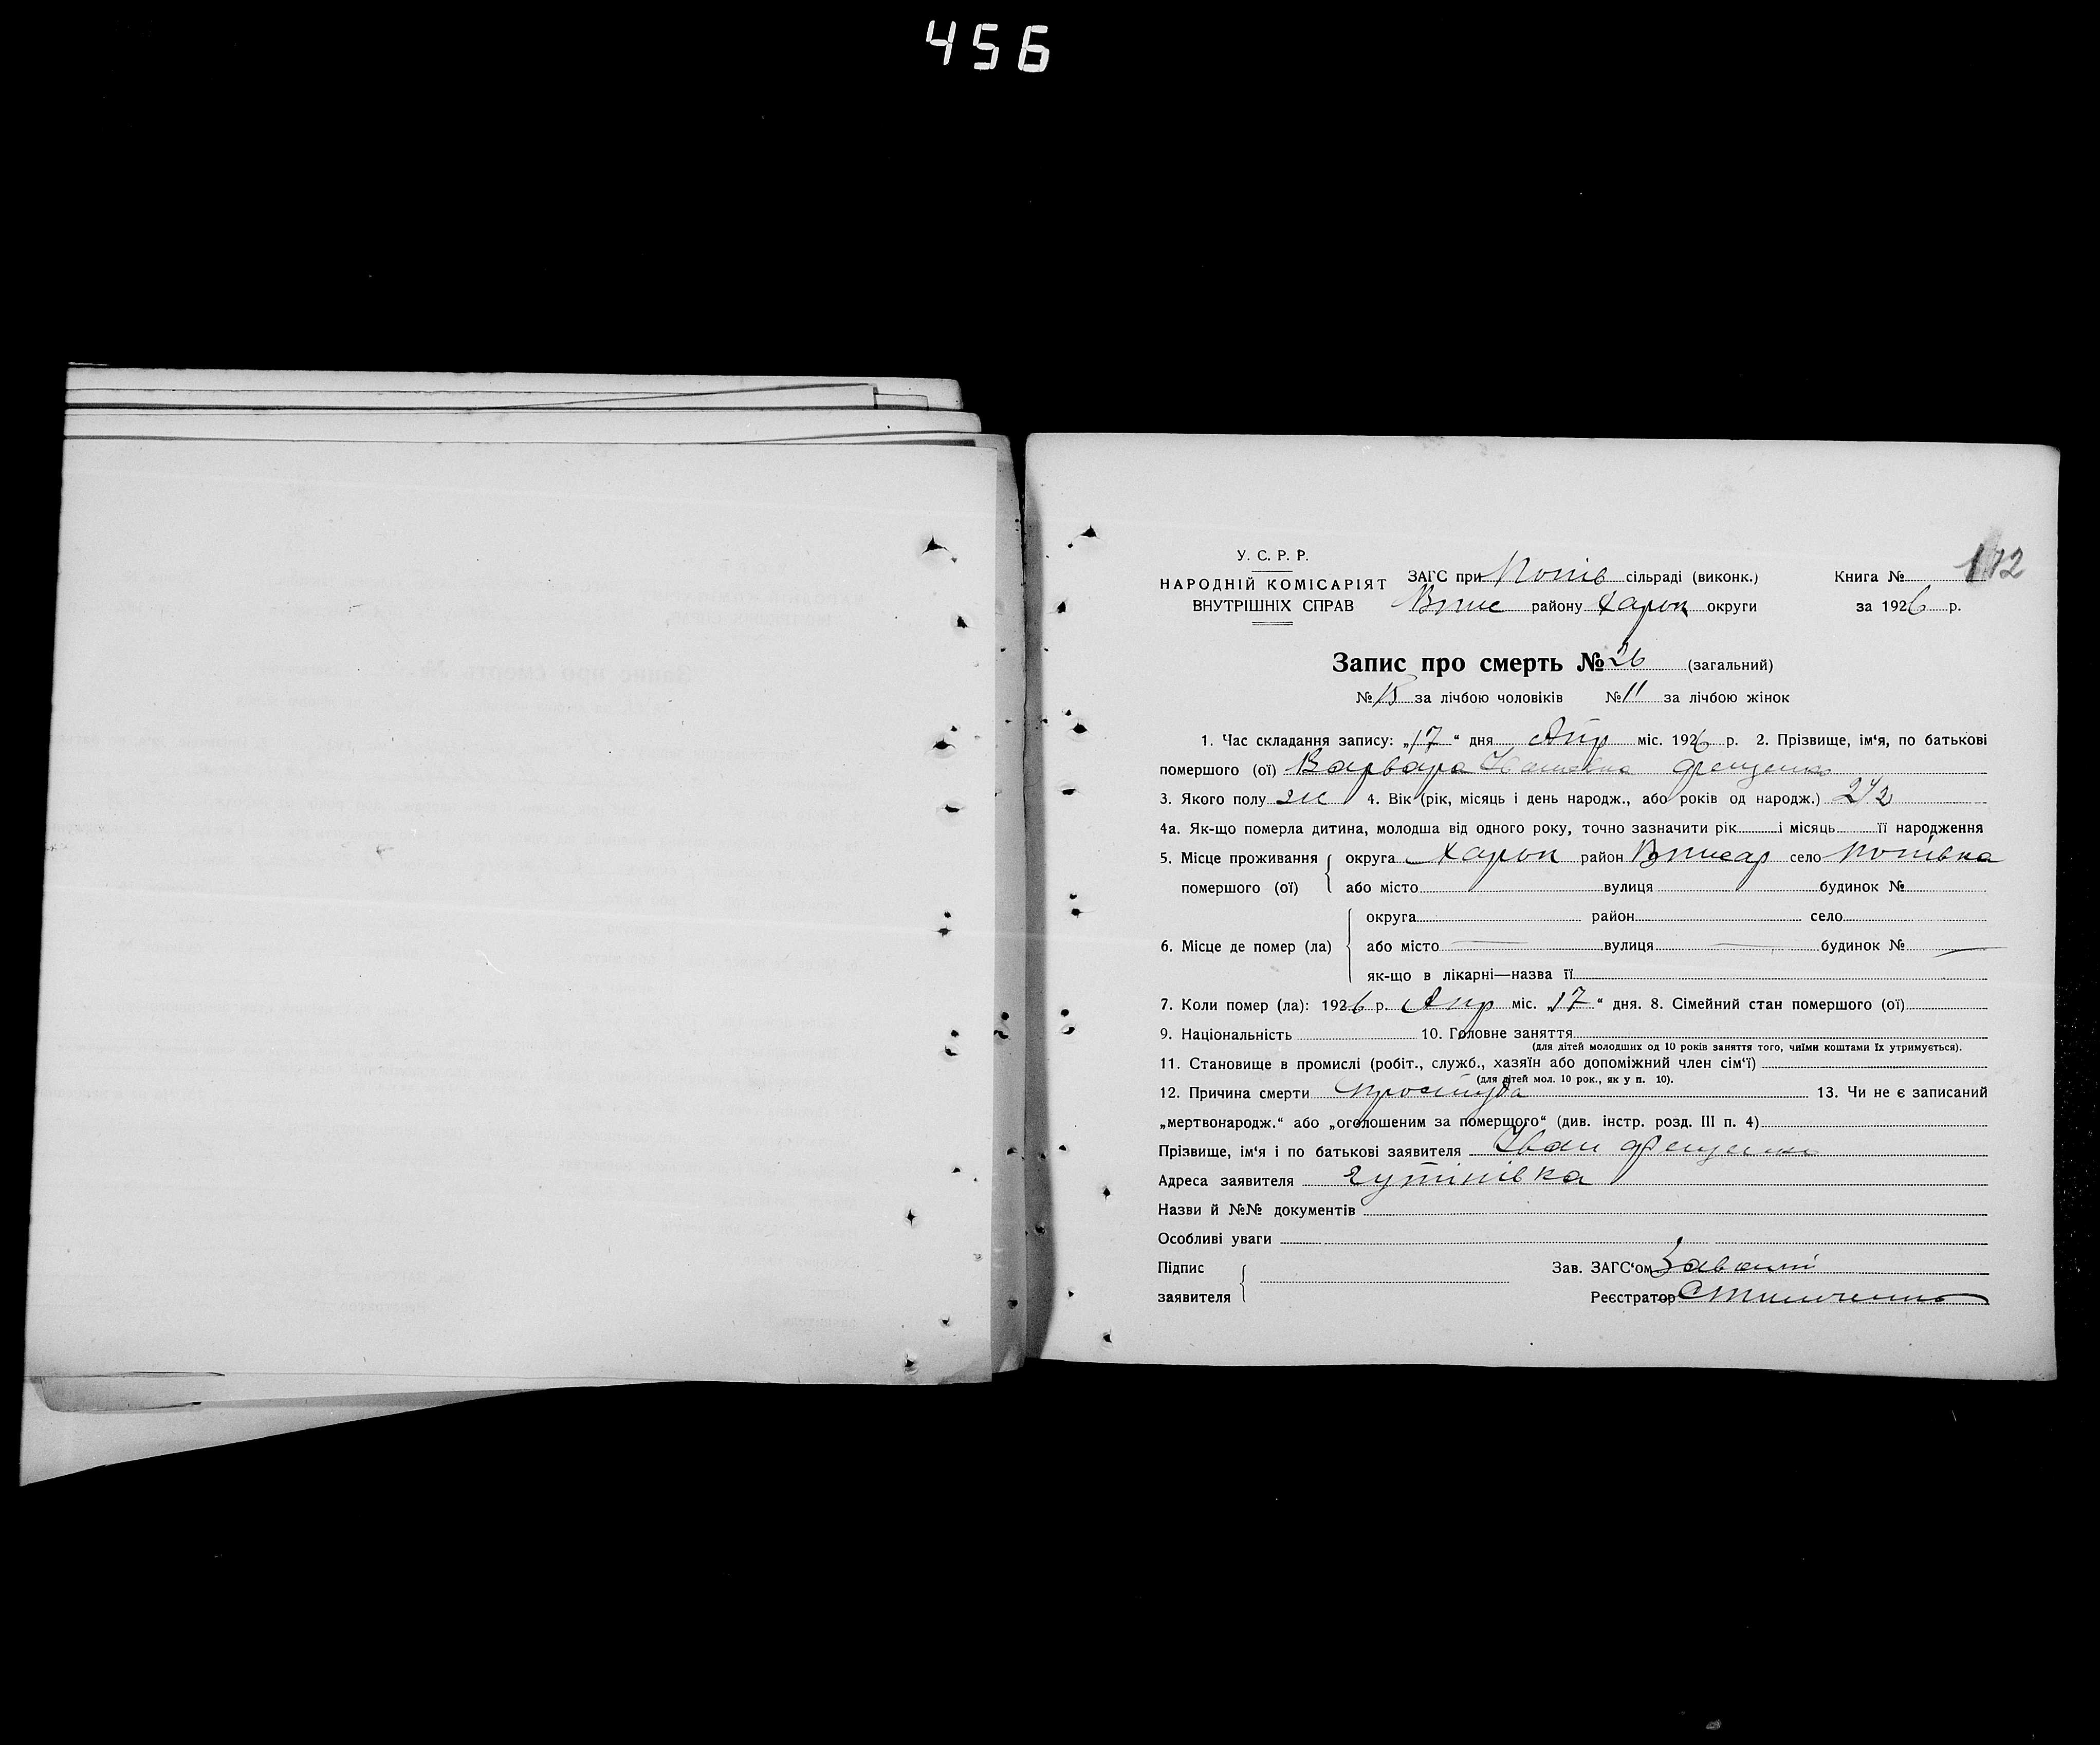 456
У. С. Р. Р.
НАРОДНІЙ КОМІСАРІЯТ
ВНУТРІШНІХ СПРАВ
ЗАГС при Попів сільраді (виконк.)
району Харок округи
Книга № 112
за 1926 р.
Запис про смерть № 26 (загальний)
№ 15 за лічбою чоловіків № 11 за лічбою жінок
1. Час складання запису: „17“ дня Апр міс. 1926 р. 2. Прізвище, ім‘я, по батькові
помершого (ої) Варвара Ивановна
3. Якого полу жи 4. Вік (рік, місяць і день народж., або років од народж.)
4а. Як-що померла дитина, молодша від одного року, точно зазначити рік і місяць її народження
5. Місце проживання округа Харок район село Попівка
помершого (ої) або місто вулиця будинок №
округа район село
6. Місце де помер (ла) або місто — вулиця — будинок № —
як-що в лікарні—назва її
7. Коли помер (ла): 1926 р. Апр міс. „17“ дня. 8. Сімейний стан помершого (ої)
9. Національність 10. Головне заняття
(для дітей молодших од 10 років заняття того, чиїми коштами їх утримується).
11. Становище в промислі (робіт., служб., хазяїн або допоміжний член сім‘ї)
(для дітей мол. 10 рок., як у п. 10).
12. Причина смерти простуда 13. Чи не є записаний
„мертвонародж.“ або „оголошеним за померщого“ (див. інстр. розд. III п. 4)
Прізвище, ім‘я і по батькові заявителя Іван
Адреса заявителя
Назви й №№ документів
Особливі уваги
Підпис
заявителя
Зав. ЗАГС‘ом
Реєстратор